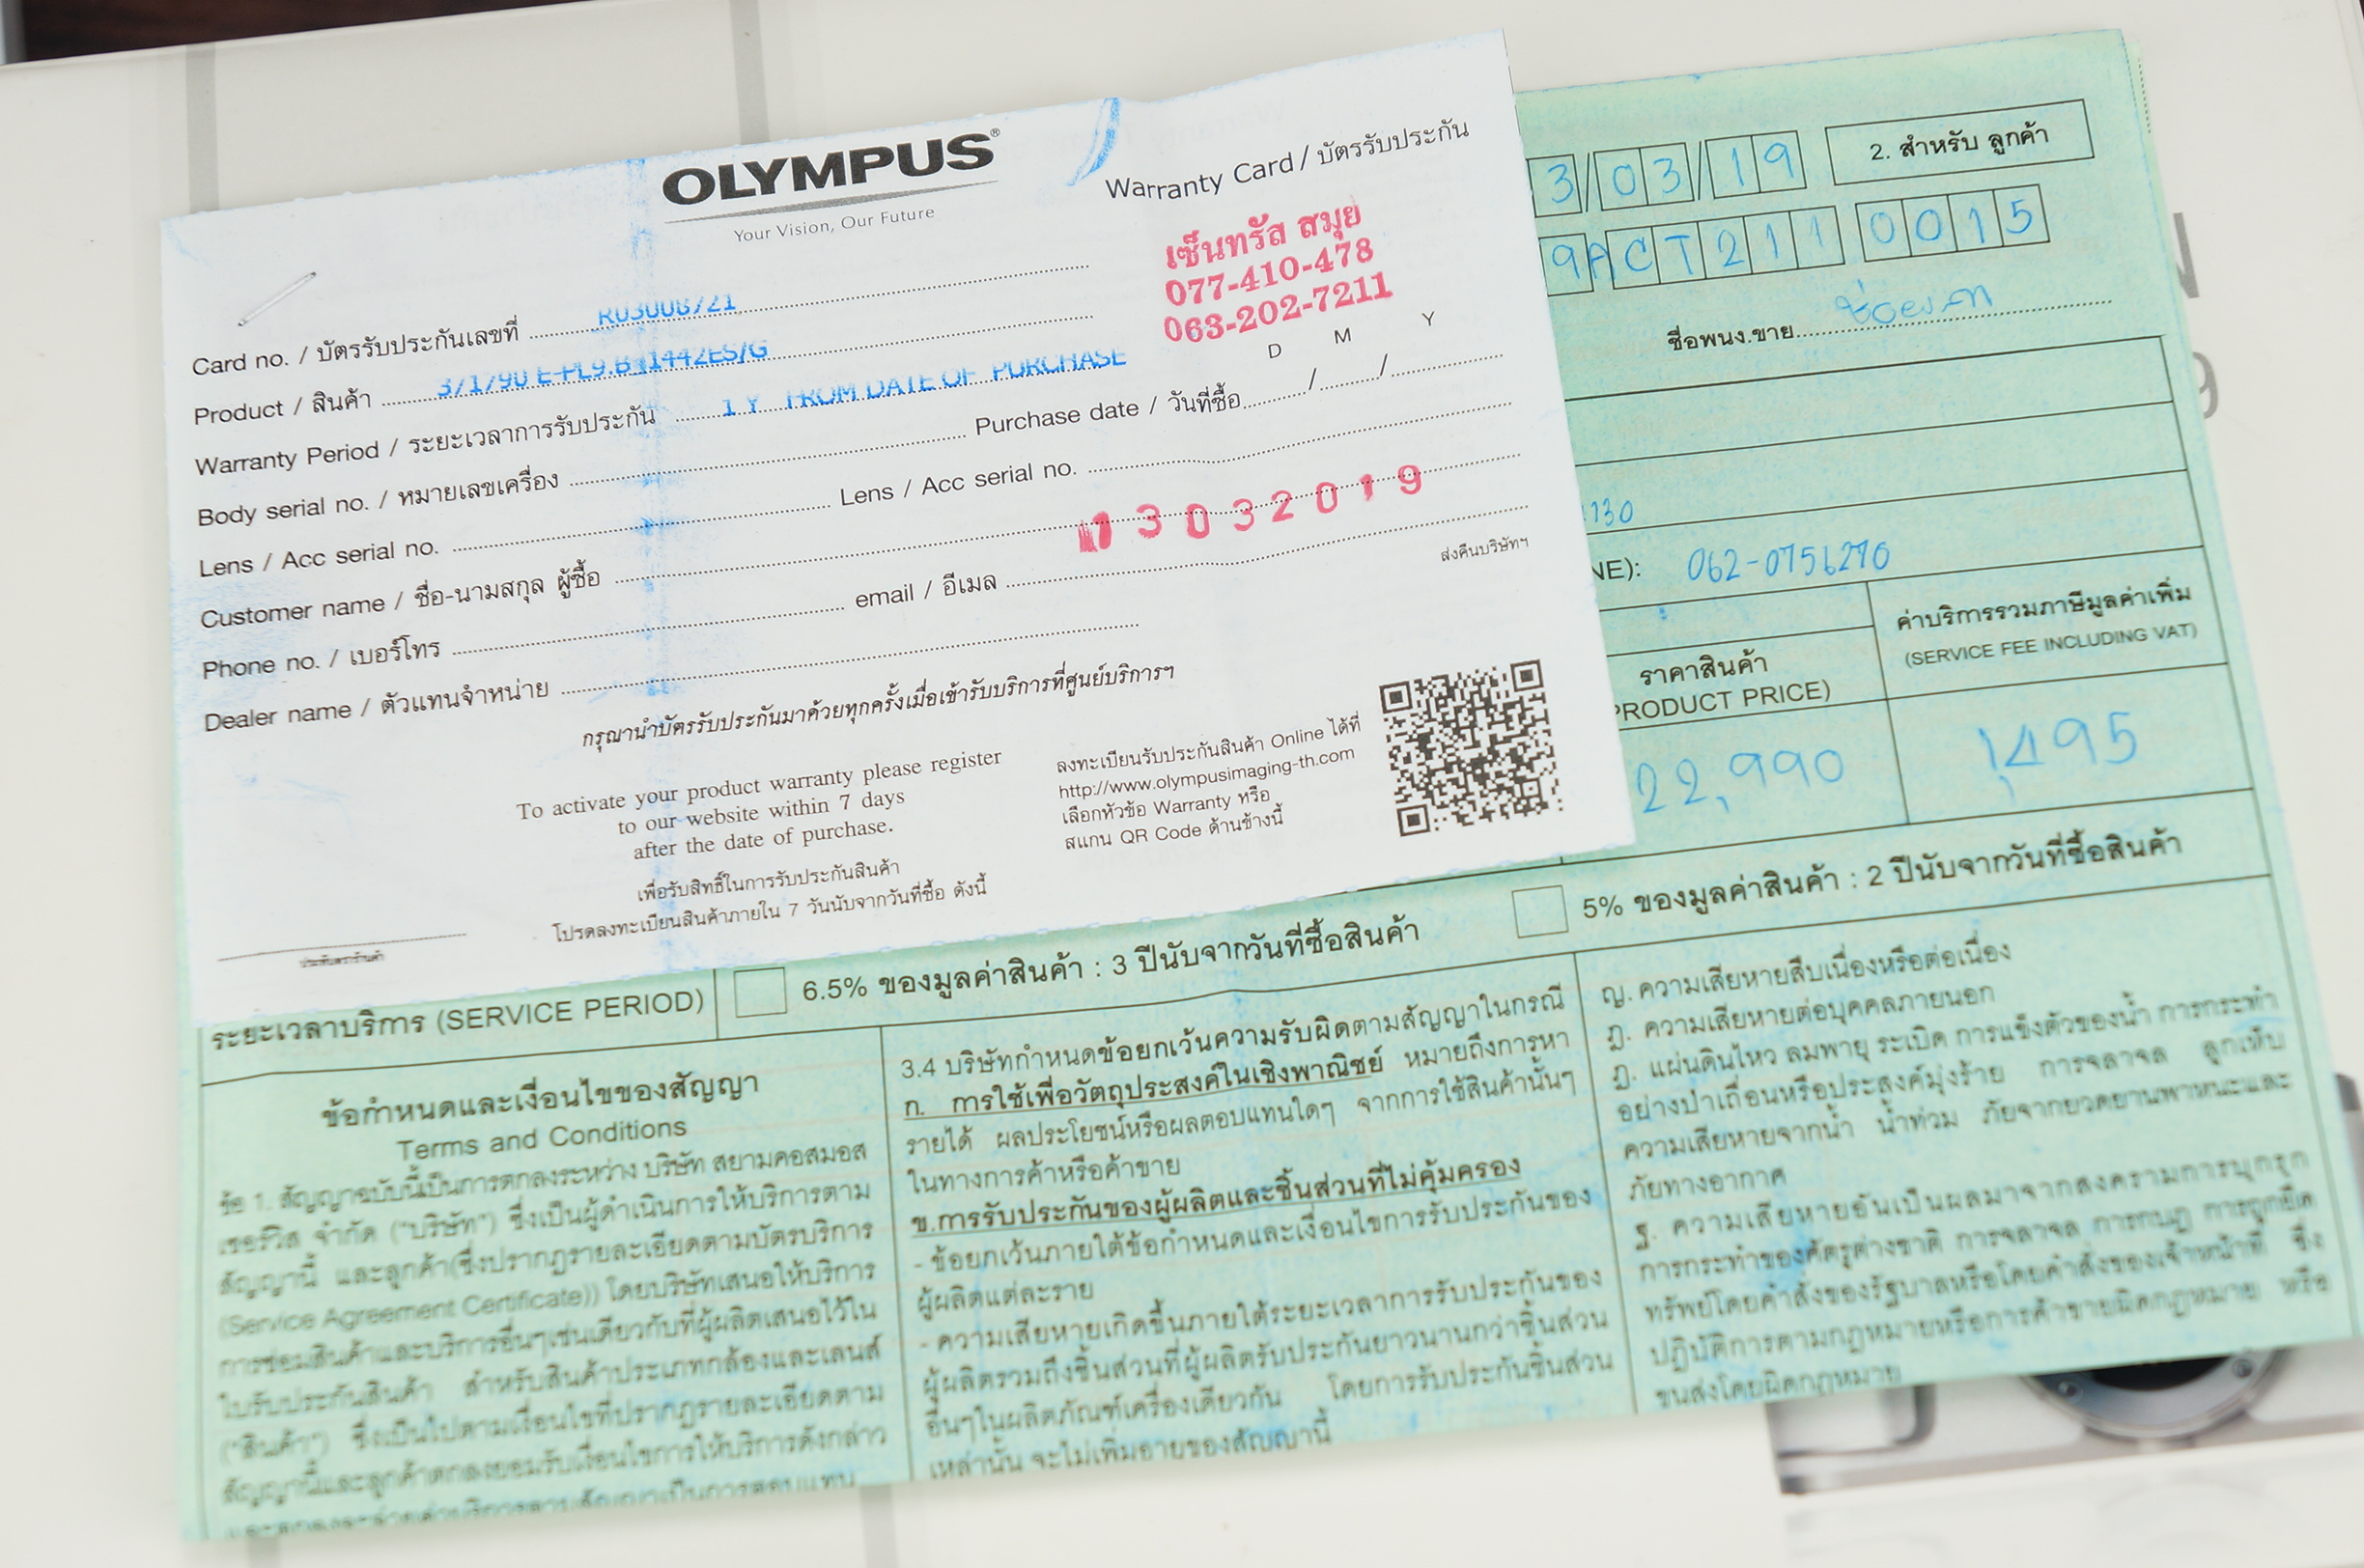 OLYMPUS®
Your Vision, Our Future
Warranty Card / บัตรรับประกัน
เซ็นทรัล สมุย
077-410-478
063-202-7211
Card no. / บัตรรับประกันเลขที่ R03008721
Product / สินค้า
Warranty Period / ระยะเวลาการรับประกัน 1 Y FROM DATE OF PURCHASE
D M Y
Body serial no. / หมายเลขเครื่อง Purchase date / วันที่ซื้อ / /
Lens / Acc serial no. Lens / Acc serial no.
Customer name / ชื่อ-นามสกุล ผู้ซื้อ
13032019
Phone no. / เบอร์โทร email / อีเมล
Dealer name / ตัวแทนจำหน่าย
ส่งคืนบริษัทฯ
กรุณานำบัตรรับประกันมาด้วยทุกครั้งเมื่อเข้ารับบริการที่ศูนย์บริการฯ
To activate your product warranty please register
to our website within 7 days
after the date of purchase.
เพื่อรับสิทธิ์ในการรับประกันสินค้า
โปรดลงทะเบียนสินค้าภายใน 7 วันนับจากวันที่ซื้อ ดังนี้
ลงทะเบียนรับประกันสินค้า Online ได้ที่
http://www.olympusimaging-th.com
เลือกหัวข้อ Warranty หรือ
สแกน QR Code ด้านข้างนี้
ประทับตราร้านค้า
3/03/19
2. สำหรับ ลูกค้า
9ACT211 0015
ชื่อพนง.ขาย
130
NE): 062-0756270
ราคาสินค้า
PRODUCT PRICE)
ค่าบริการรวมภาษีมูลค่าเพิ่ม
(SERVICE FEE INCLUDING VAT)
22,990
1,495
ระยะเวลาบริการ (SERVICE PERIOD)
6.5% ของมูลค่าสินค้า : 3 ปีนับจากวันที่ซื้อสินค้า
5% ของมูลค่าสินค้า : 2 ปีนับจากวันที่ซื้อสินค้า
ข้อกำหนดและเงื่อนไขของสัญญา
Terms and Conditions
ข้อ 1. สัญญาฉบับนี้เป็นการตกลงระหว่าง บริษัท สยามคอสมอส
เซอร์วิส จำกัด ("บริษัท") ซึ่งเป็นผู้ดำเนินการให้บริการตาม
สัญญานี้ และลูกค้า(ซึ่งปรากฏรายละเอียดตามบัตรบริการ
(Service Agreement Certificate)) โดยบริษัทเสนอให้บริการ
การซ่อมสินค้าและบริการอื่นๆเช่นเดียวกับที่ผู้ผลิตเสนอไว้ใน
ใบรับประกันสินค้า สำหรับสินค้าประเภทกล้องและเลนส์
("สินค้า") ซึ่งเป็นไปตามเงื่อนไขที่ปรากฏรายละเอียดตาม
สัญญานี้และลูกค้าตกลงยอมรับเงื่อนไขการให้บริการดังกล่าว
3.4 บริษัทกำหนดข้อยกเว้นความรับผิดตามสัญญาในกรณี
ก. การใช้เพื่อวัตถุประสงค์ในเชิงพาณิชย์ หมายถึงการหา
รายได้ ผลประโยชน์หรือผลตอบแทนใดๆ จากการใช้สินค้านั้นๆ
ในทางการค้าหรือค้าขาย
ข.การรับประกันของผู้ผลิตและชิ้นส่วนที่ไม่คุ้มครอง
- ข้อยกเว้นภายใต้ข้อกำหนดและเงื่อนไขการรับประกันของ
ผู้ผลิตแต่ละราย
- ความเสียหายเกิดขึ้นภายใต้ระยะเวลาการรับประกันของ
ผู้ผลิตรวมถึงชิ้นส่วนที่ผู้ผลิตรับประกันยาวนานกว่าชิ้นส่วน
อื่นๆในผลิตภัณฑ์เครื่องเดียวกัน โดยการรับประกันชิ้นส่วน
เหล่านั้น จะไม่เพิ่มอายุของสัญญานี้
ญ. ความเสียหายสืบเนื่องหรือต่อเนื่อง
ฎ. ความเสียหายต่อบุคคลภายนอก
ฏ. แผ่นดินไหว ลมพายุ ระเบิด การแข็งตัวของน้ำ การกระทำ
อย่างป่าเถื่อนหรือประสงค์มุ่งร้าย การจลาจล ลูกเห็บ
ความเสียหายจากน้ำ น้ำท่วม ภัยจากยวดยานพาหนะและ
ภัยทางอากาศ
ฐ. ความเสียหายอันเป็นผลมาจากสงครามการบุกรุก
การกระทำของศัตรูต่างชาติ การจลาจล การกบฏ การถูกยึด
ทรัพย์โดยคำสั่งของรัฐบาลหรือโดยคำสั่งของเจ้าหน้าที่ ซึ่ง
ปฏิบัติการตามกฎหมายหรือการค้าขายผิดกฎหมาย หรือ
ขนส่งโดยผิดกฎหมาย